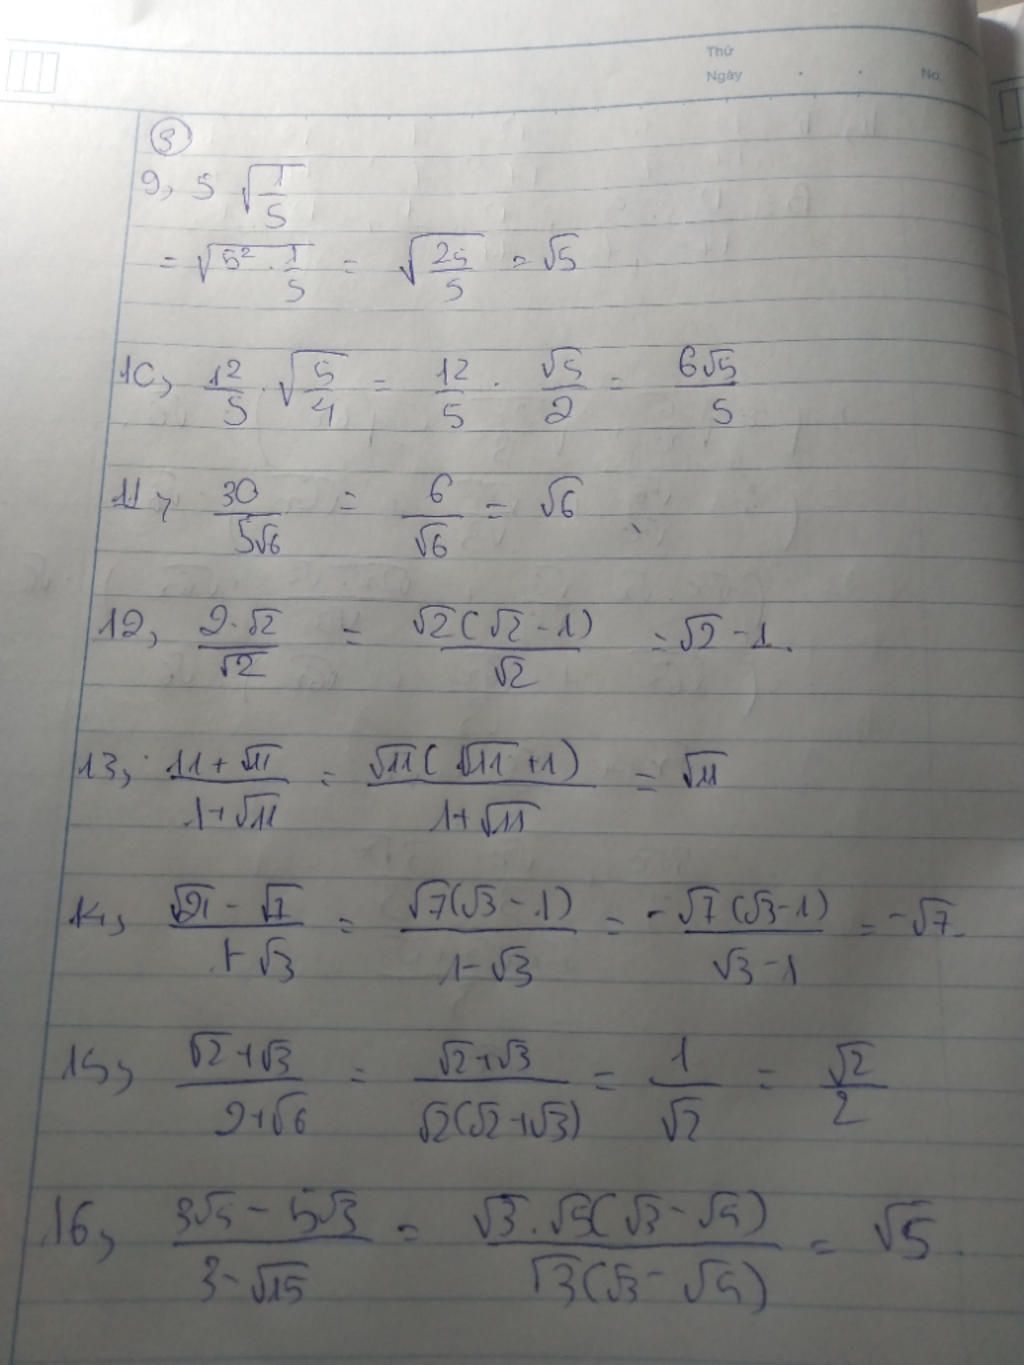 Thứ
Ngày . . No.
③
9, 5 √(1/5)
= √(5² · 1/5) = √(25/5) = √5
10, 12/5 · √(5/4) = 12/5 · √5/2 = 6√5/5
11, 30/(5√6) = 6/√6 = √6
12, (2·√2)/√2 = √2(√2 - 1)/√2 = √2 - 1.
13, (11 + √11)/(1 + √11) = √11(√11 + 1)/(1 + √11) = √11
14, (√21 - √7)/(1 - √3) = √7(√3 - 1)/(1 - √3) = -√7(√3 - 1)/(√3 - 1) = -√7.
15, (√2 + √3)/(2 + √6) = (√2 + √3)/(√2(√2 + √3)) = 1/√2 = √2/2
16, (3√5 - 5√3)/(3 - √15) = √3 · √5(√3 - √5)/(√3(√3 - √5)) = √5.